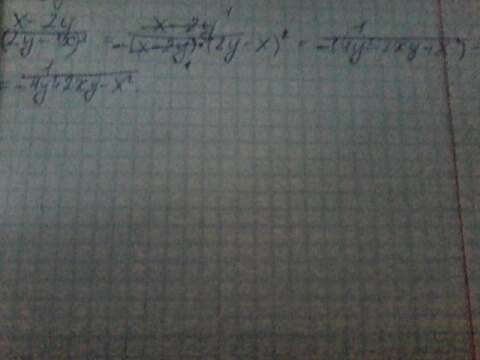 x - 2y / (2y - x)³ = x - 2y / -(x - 2y)·(2y - x)² = 1 / -(4y² - 2xy + x²) =
= 1 / -4y² + 2xy - x².